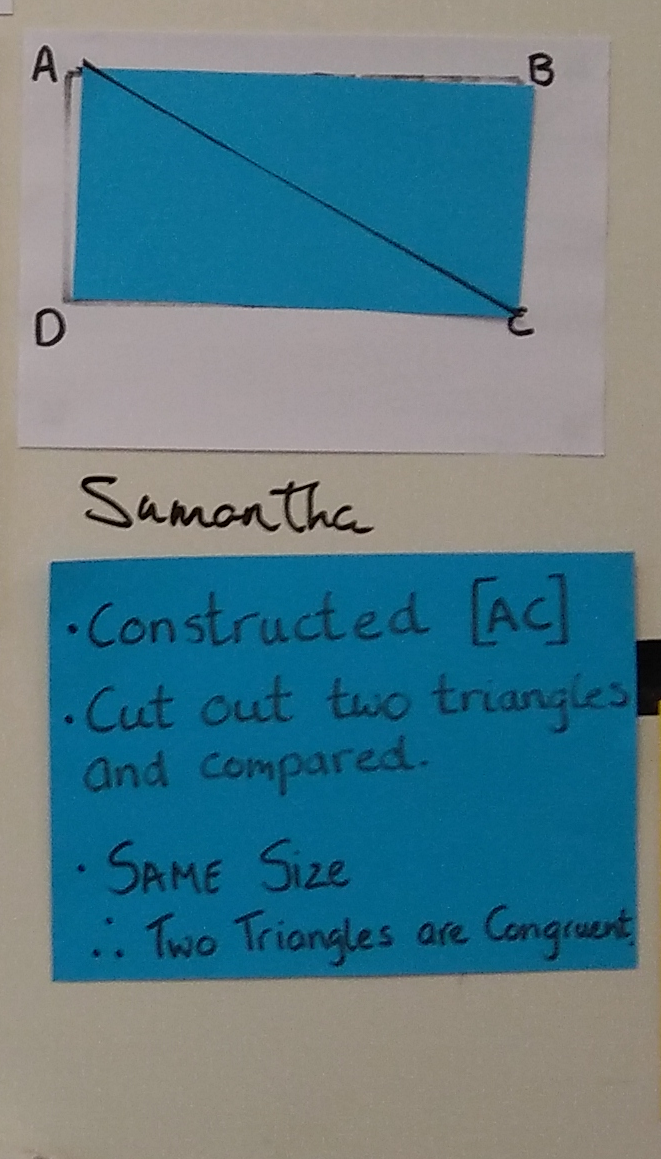 A B
D C
Samantha
· Constructed [AC]
· Cut out two triangles
and compared.
· SAME Size
∴ Two Triangles are Congruent.